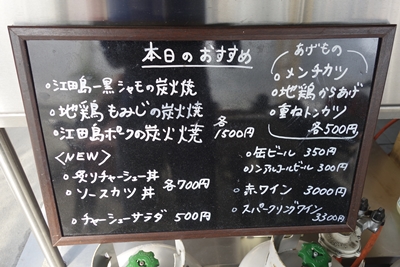 本日のおすすめ
○江田島一黒シャモの炭火焼
○地鶏もみじの炭火焼
○江田島ポークの炭火焼 各1500円
<NEW>
○炙りチャーシュー丼
○ソースカツ丼 各700円
○チャーシューサラダ 500円
あげもの
○メンチカツ
○地鶏からあげ
○重ねトンカツ
各500円
○缶ビール 350円
○ノンアルコールビール 300円
○赤ワイン 3000円
○スパークリングワイン
3300円